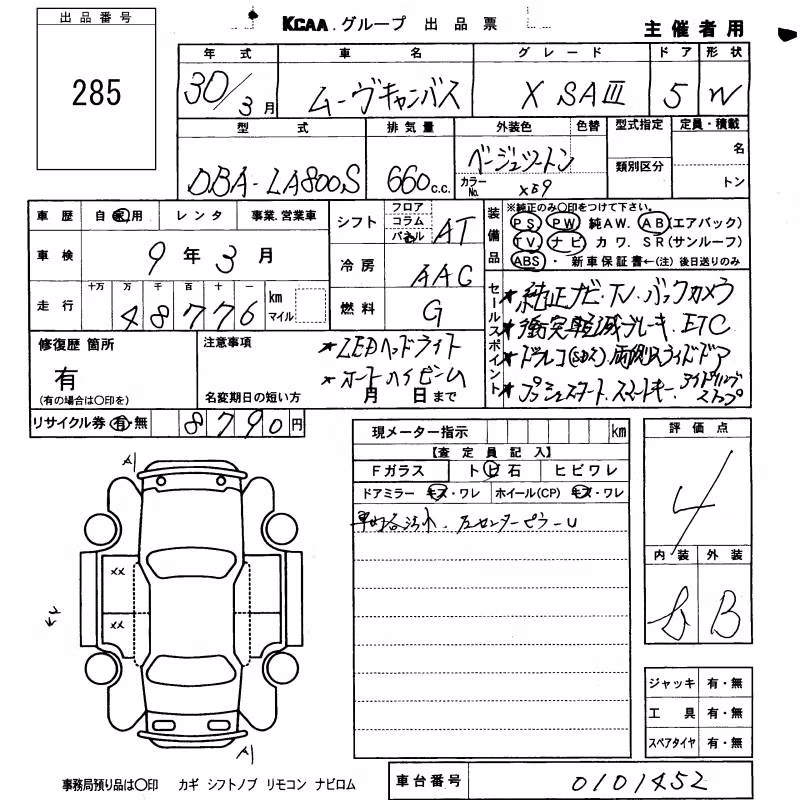 出品番号
285
KCAA グループ 出品票
主催者用
年式 車名 グレード ドア 形状
30/3月 ムーヴキャンバス X SAⅢ 5 W
型式 排気量 外装色 色替 型式指定 定員・積載
DBA-LA800S 660c.c. ベージュツートン 名
カラーNo. X59 類別区分 トン
車歴 自家用 レンタ 事業.営業車
車検 9年3月
走行 十万 万 千 百 十 一
48776 km マイル
シフト フロア コラム パネル AT
冷房 AAC
燃料 G
装備品
※純正のみ〇印をつけて下さい。
PS PW 純AW. AB(エアバック)
TV ナビ カワ. SR(サンルーフ)
ABS ・ 新車保証書←(注) 後日送りのみ
セールスポイント
★純正ナビ.TV.バックカメラ
★衝突軽減ブレーキ.ETC
★ドラレコ(SDナシ).両側スライドドア
★プッシュスタート.スマートキー.アイドリングストップ
修復歴 箇所
有
(有の場合は〇印を)
注意事項
★LEDヘッドライト
★オートハイビーム
名変期日の短い方 月 日まで
リサイクル券 有 無 8790円
現メーター指示 km
【査定員記入】
Fガラス トビ石 ヒビワレ
ドアミラー キズ・ワレ ホイール(CP) キズ・ワレ
車内各汚れ. 左センターピラーU
評価点
4
内装 外装
B
A1
XX
XX
A1
ジャッキ 有・無
工具 有・無
スペアタイヤ 有・無
事務局預り品は〇印 カギ シフトノブ リモコン ナビロム
車台番号 0101452